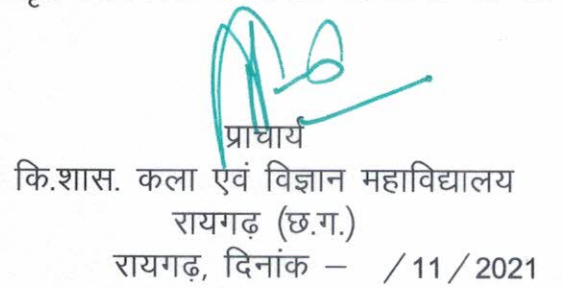 प्राचार्य
कि.शास. कला एवं विज्ञान महाविद्यालय
रायगढ़ (छ.ग.)
रायगढ़, दिनांक – /11/2021